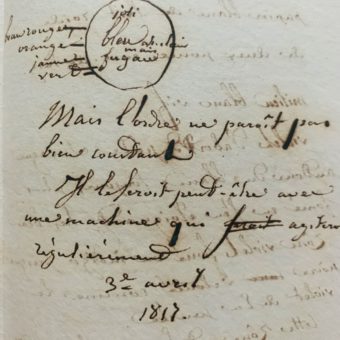 joli
beau rouge
orange
jaune
vert
bleu
mais
fugace
Mais l'ordre ne paroît pas
bien constant
Il le seroit peut-être avec
une machine qui agitera
régulièrement
3e avril
1817.